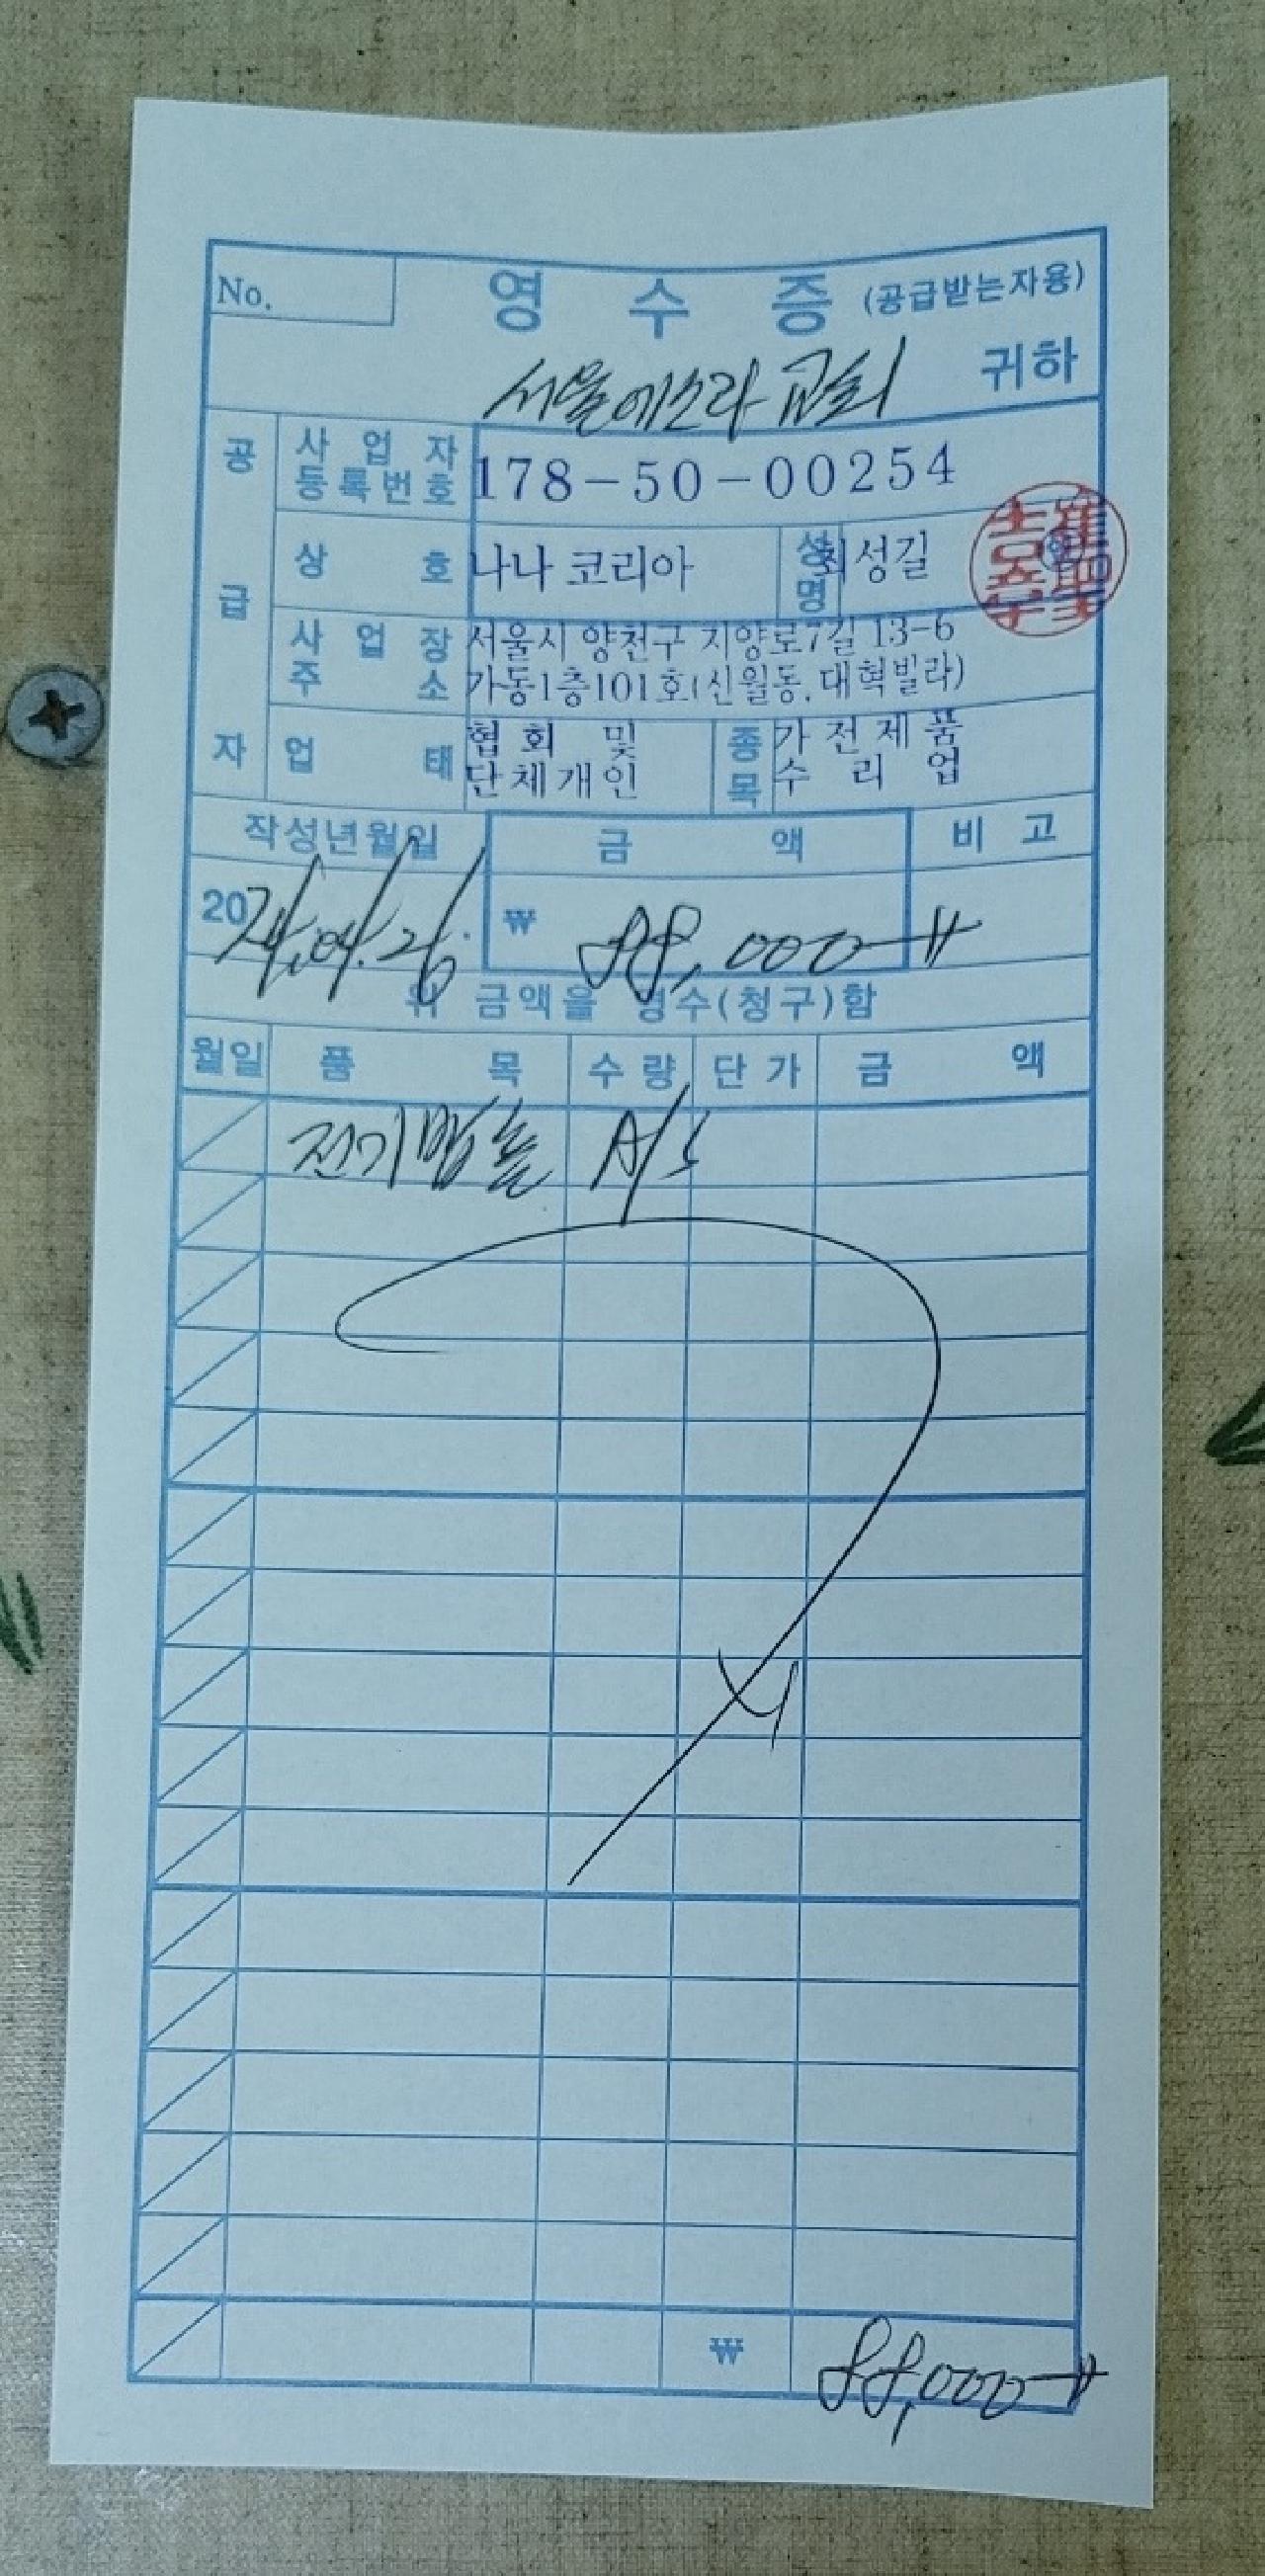 No.
영 수 증 (공급받는자용)
서울에스라교회 귀하
공급자
사업자등록번호 178-50-00254
상호 나나 코리아 성명 최성길
사업장주소 서울시 양천구 지양로7길 13-6
가동1층101호(신월동, 대혁빌라)
업태 협회 및 단체개인 종목 가전제품수리업
작성년월일 금액 비고
2024.04.26. ₩ 88,000
위 금액을 영수(청구)함
월일 품목 수량 단가 금액
전기밥솥 A/S
₩ 88,000